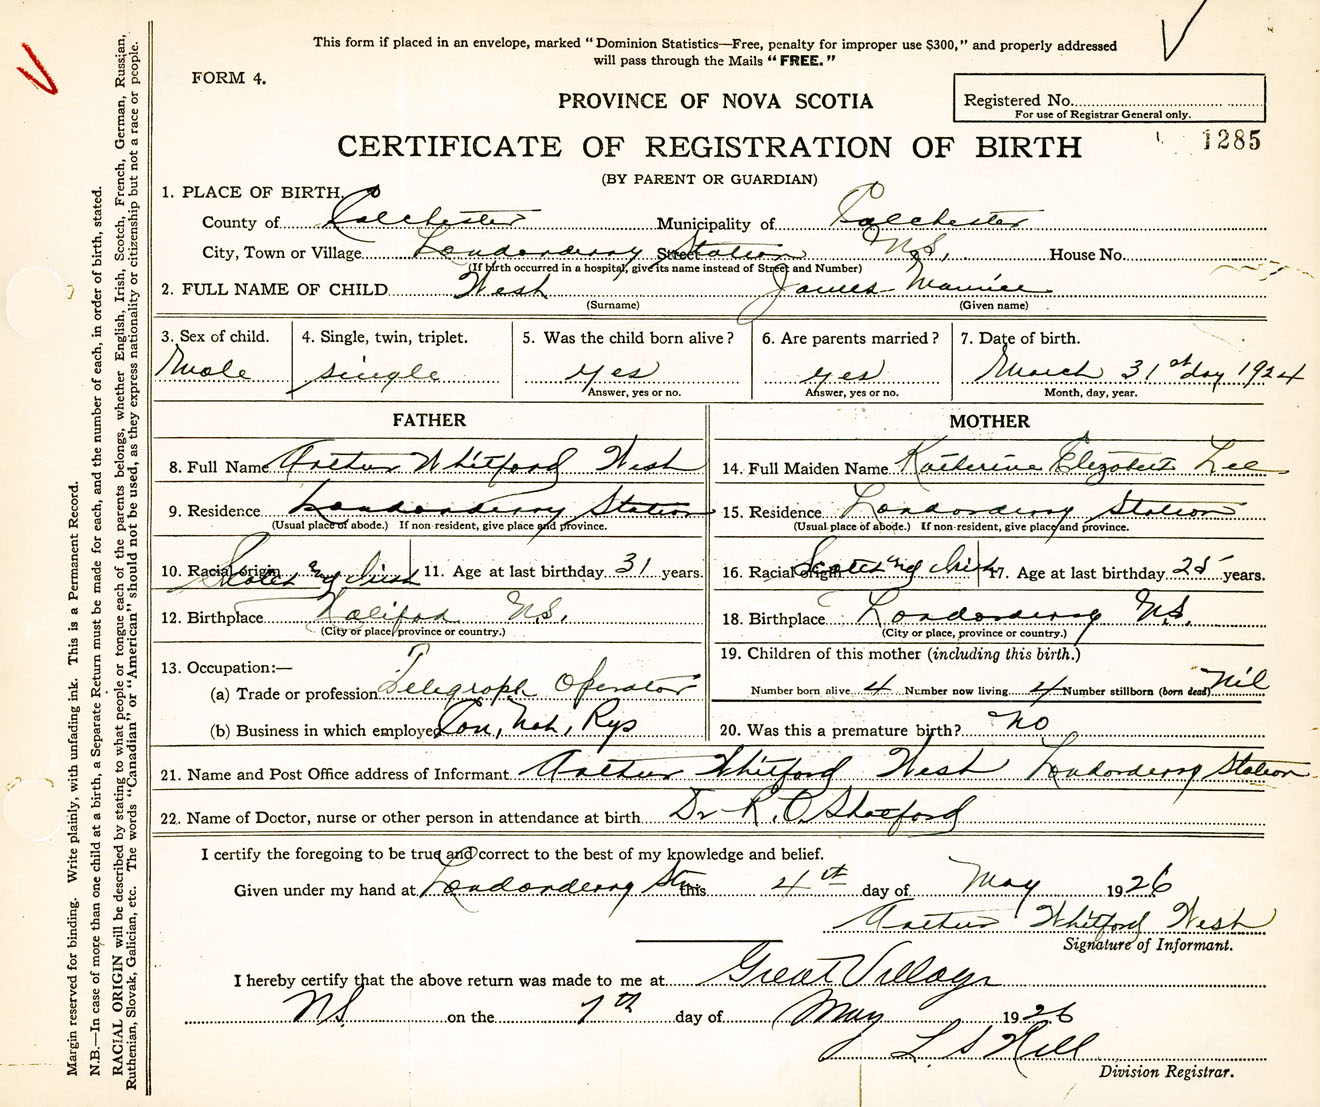 This form if placed in an envelope, marked "Dominion Statistics—Free, penalty for improper use $300," and properly addressed
will pass through the Mails "FREE."
FORM 4.
PROVINCE OF NOVA SCOTIA
Registered No.
For use of Registrar General only.
CERTIFICATE OF REGISTRATION OF BIRTH
1285
(BY PARENT OR GUARDIAN)
1. PLACE OF BIRTH.
County of Colchester Municipality of Colchester
City, Town or Village Londonderry Station Street N.S. House No.
(If birth occurred in a hospital, give its name instead of Street and Number)
2. FULL NAME OF CHILD West James Maurice
(Surname) (Given name)
3. Sex of child. 4. Single, twin, triplet. 5. Was the child born alive? 6. Are parents married? 7. Date of birth.
Male single yes yes March 31st day 1924
Answer, yes or no. Answer, yes or no. Month, day, year.
FATHER MOTHER
8. Full Name Arthur Whitford West 14. Full Maiden Name Katherine Elizabeth Lee
9. Residence Londonderry Station 15. Residence Londonderry Station
(Usual place of abode.) If non-resident, give place and province. (Usual place of abode.) If non-resident, give place and province.
10. Racial origin Scotch and Irish 11. Age at last birthday 31 years. 16. Racial origin Scotch and Irish 17. Age at last birthday 25 years.
12. Birthplace Halifax N.S. 18. Birthplace Londonderry N.S.
(City or place, province or country.) (City or place, province or country.)
13. Occupation:— 19. Children of this mother (including this birth.)
(a) Trade or profession Telegraph Operator Number born alive 4 Number now living 4 Number stillborn (born dead) Nil
(b) Business in which employed Can, Nat, Rys 20. Was this a premature birth? No
21. Name and Post Office address of Informant Arthur Whitford West Londonderry Station
22. Name of Doctor, nurse or other person in attendance at birth Dr R. O. Shatford
I certify the foregoing to be true and correct to the best of my knowledge and belief.
Given under my hand at Londonderry Stn this 4th day of May 1926
Arthur Whitford West
Signature of Informant.
I hereby certify that the above return was made to me at Great Village
N.S. on the 7th day of May 1926
L S Hill
Division Registrar.
Margin reserved for binding. Write plainly, with unfading ink. This is a Permanent Record.
N.B.—In case of more than one child at a birth, a Separate Return must be made for each, and the number of each, in order of birth, stated.
RACIAL ORIGIN will be described by stating to what people or tongue each of the parents belongs, whether English, Irish, Scotch, French, German, Russian,
Ruthenian, Slovak, Galician, etc. The words "Canadian" or "American" should not be used, as they express nationality or citizenship but not a race or people.